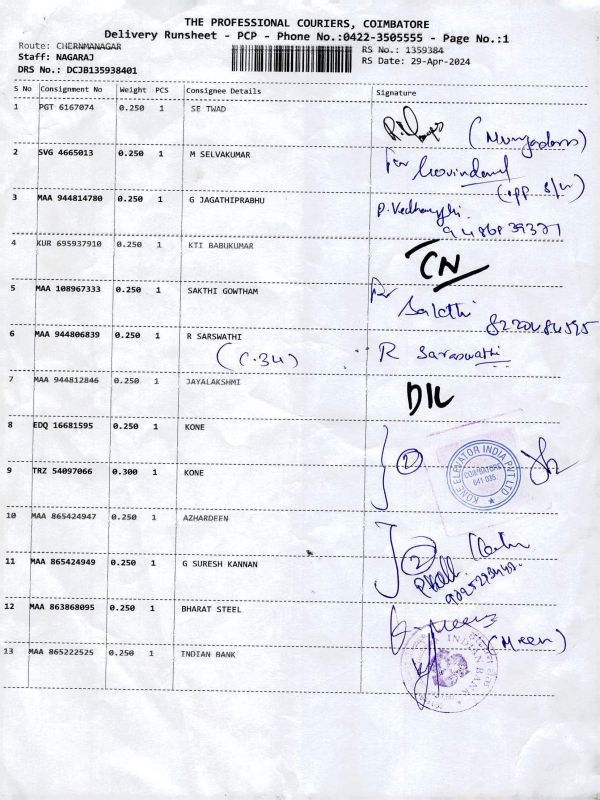 THE PROFESSIONAL COURIERS, COIMBATORE
Delivery Runsheet - PCP - Phone No.:0422-3505555 - Page No.:1
Route: CHERNMANAGAR
RS No.: 1359384
Staff: NAGARAJ
RS Date: 29-Apr-2024
DRS No.: DCJB135938401
S No Consignment No Weight PCS Consignee Details Signature
1 PGT 6167074 0.250 1 SE TWAD
2 SVG 4665013 0.250 1 M SELVAKUMAR for
(opp s/w)
3 MAA 944814780 0.250 1 G JAGATHIPRABHU
4 KUR 695937910 0.250 1 KTI BABUKUMAR CN
5 MAA 108967333 0.250 1 SAKTHI GOWTHAM for Sakthi
6 MAA 944806839 0.250 1 R SARSWATHI R Saraswathi
(C.34)
7 MAA 944812846 0.250 1 JAYALAKSHMI D/L
8 EDQ 16681595 0.250 1 KONE
2
KONE ELEVATOR INDIA PVT LTD
COIMBATORE
641 035.
9 TRZ 54097066 0.300 1 KONE
10 MAA 865424947 0.250 1 AZHARDEEN
2
11 MAA 865424949 0.250 1 G SURESH KANNAN
12 MAA 863868095 0.250 1 BHARAT STEEL
(Meen)
13 MAA 865222525 0.250 1 INDIAN BANK
INDIAN BANK